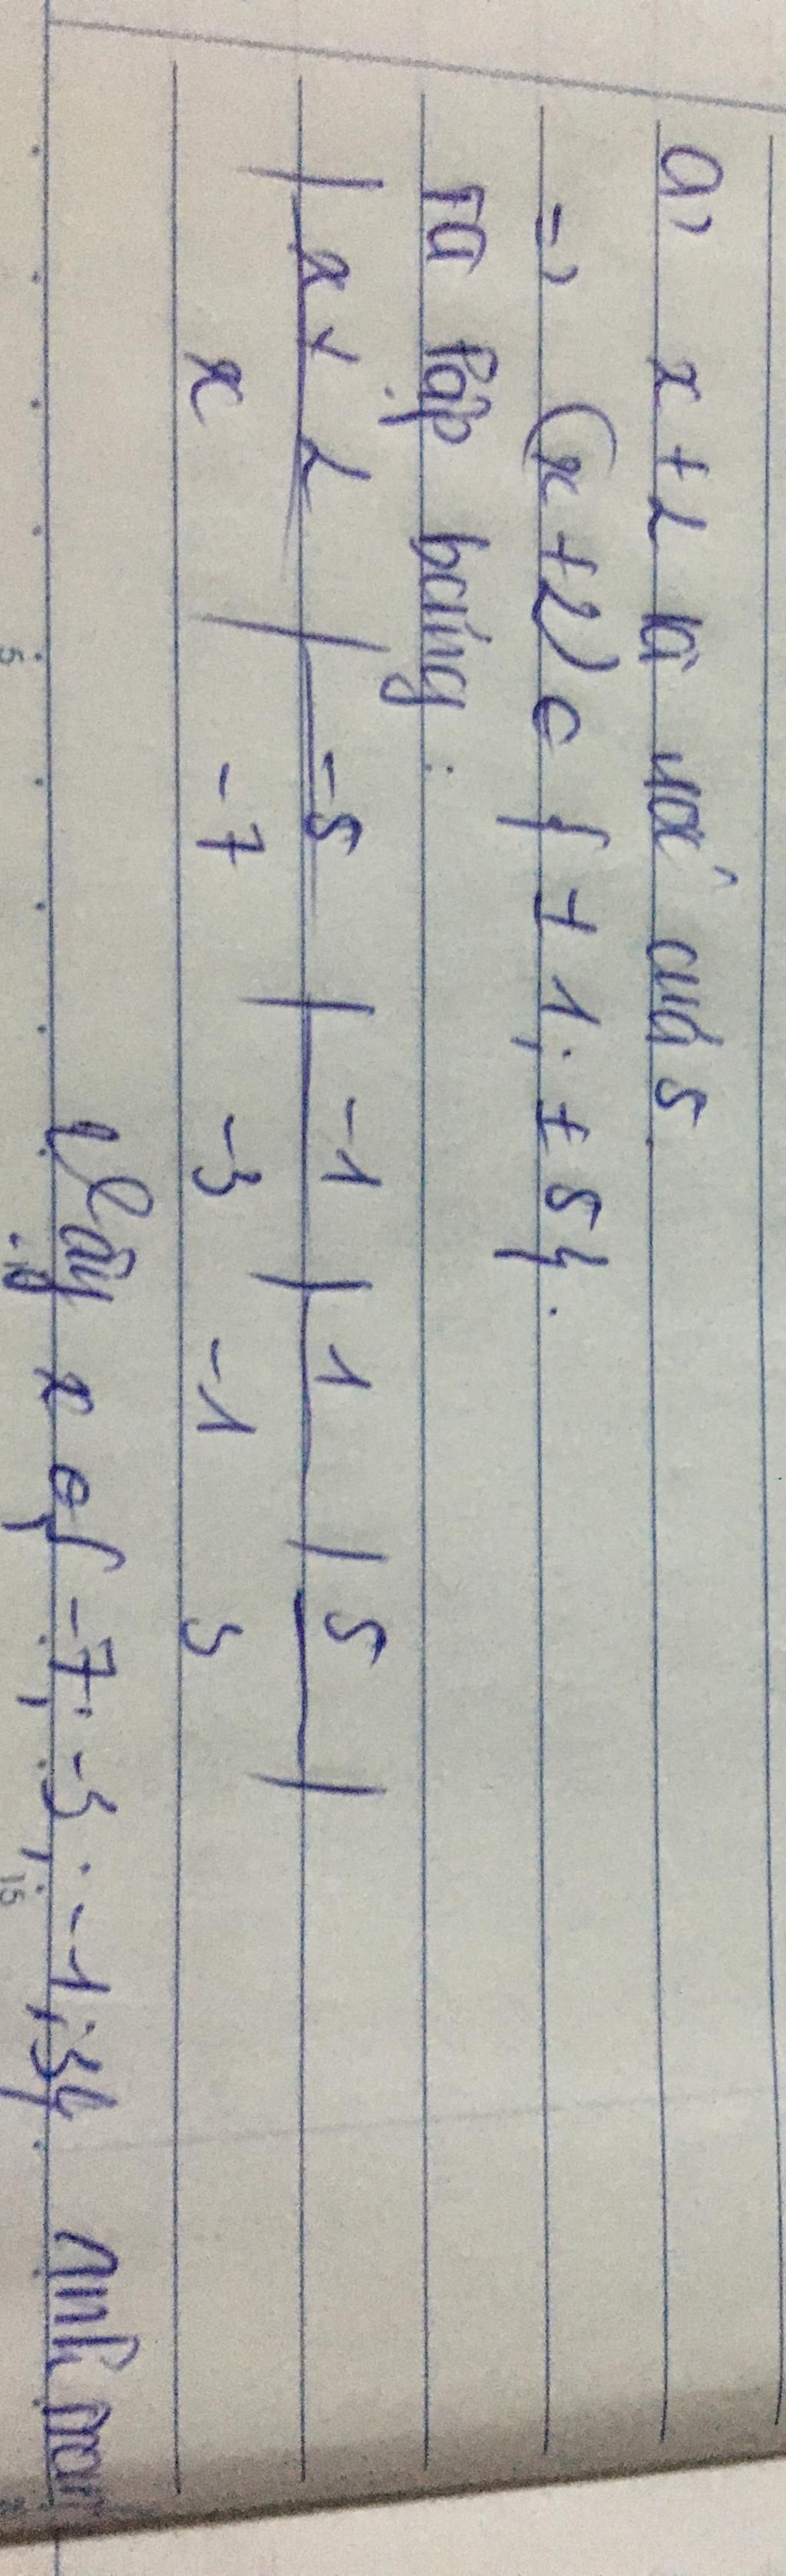 a) x+2 là ước của 5.
=> (x+2) ∈ {±1; ±5}.
Ta lập bảng:
x+2 | -5 | -1 | 1 | 5 |
x -7 -3 -1 3
Vậy x ∈ {-7; -3; -1; 3}.